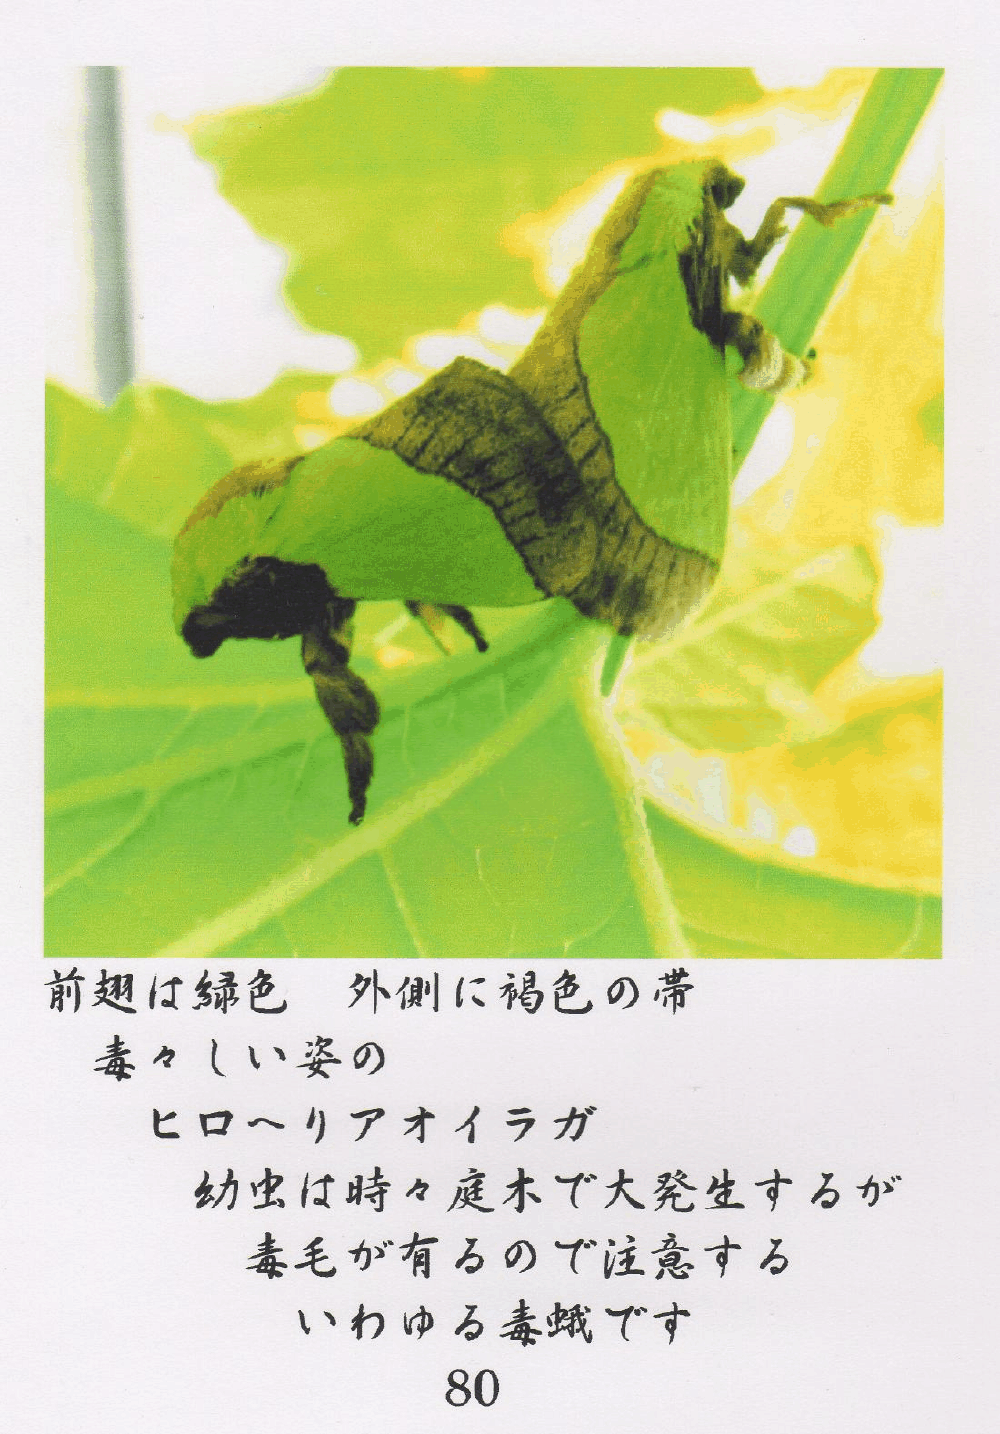 前翅は緑色　外側に褐色の帯
毒々しい姿の
ヒロヘリアオイラガ
幼虫は時々庭木で大発生するが
毒毛が有るので注意する
いわゆる毒蛾です
80